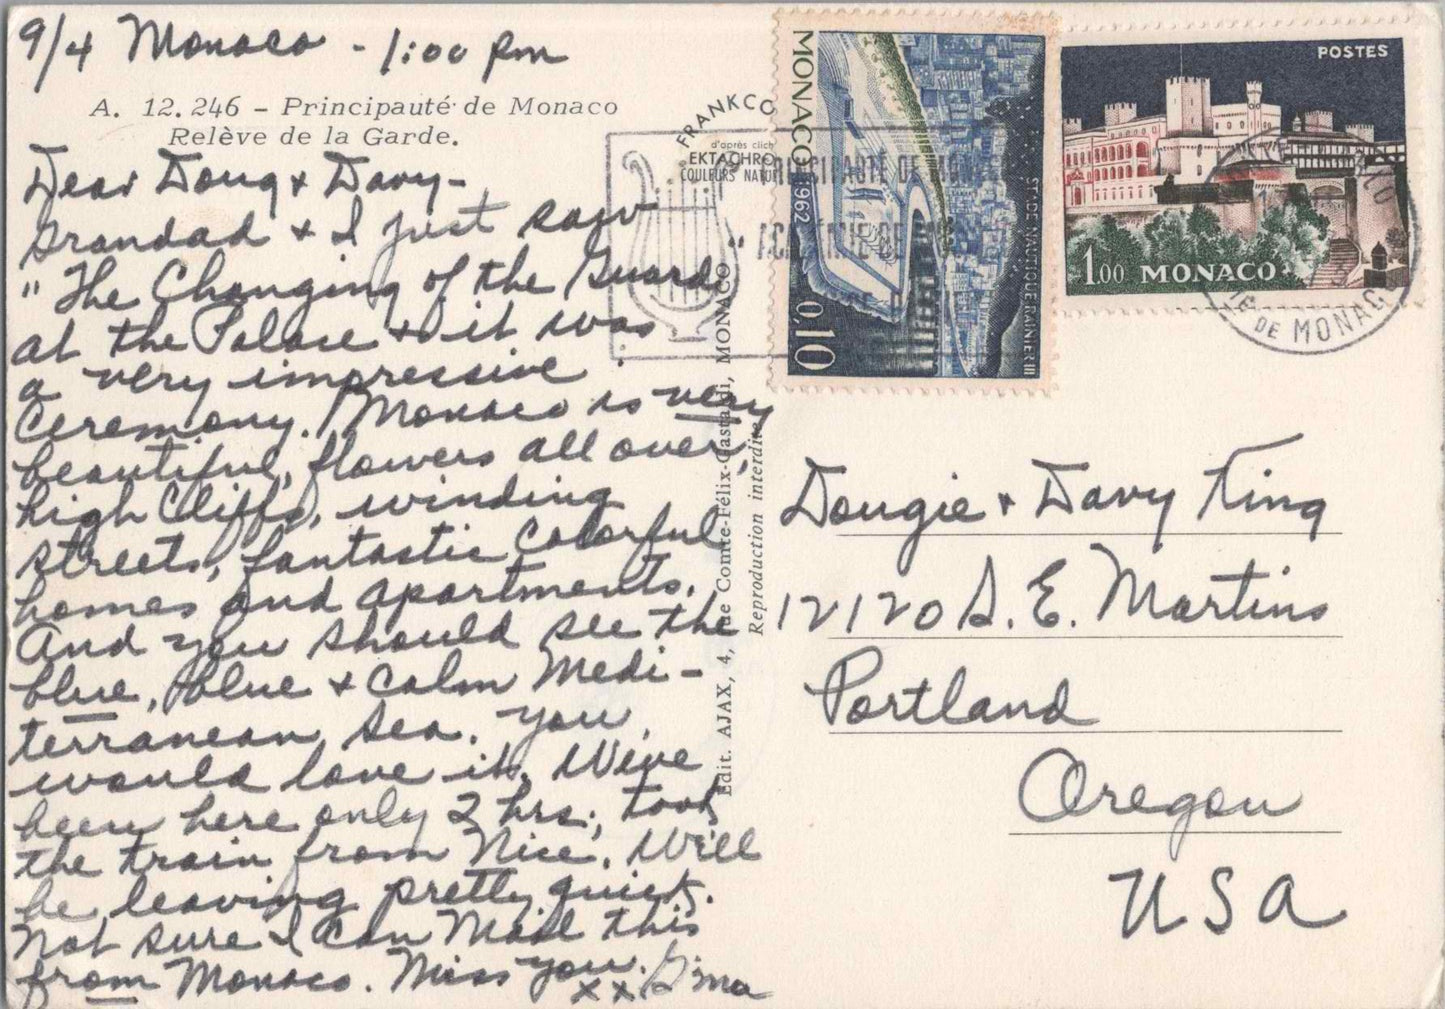 9/4 Monaco - 1:00 pm
A. 12.246 - Principauté de Monaco
Relève de la Garde.
Dear Doug & Davy-
Grandad & I just saw
"The Changing of the Guard"
at the Palace & it was
a very impressive
Ceremony. Monaco is very
beautiful, flowers all over,
high Cliffs, winding
streets, fantastic Colorful
homes and apartments.
And you should see the
blue, blue & calm Medi-
terranean Sea. You
would love it. We've
been here only 2 hrs., took
the train from Nice. Will
be leaving pretty quick.
Not sure I can Mail this
from Monaco. Miss you.
xx G'ma
FRANKCO
d'après clich
EKTACHRO
COULEURS NATU
Edit. AJAX, 4, rue Comte-Félix-Gastaldi, MONACO
Reproduction interdite
PRINCIPAUTÉ DE MONACO
MONACO
1962
0,10
STADE NAUTIQUE RAINIER III
POSTES
1.00 MONACO
DE MONACO
Dougie & Davy King
12120 S. E. Martins
Portland
Oregon
USA